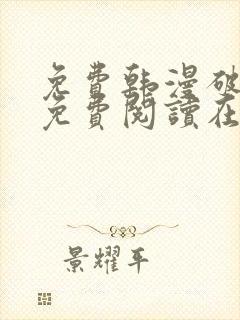 免費韩漫破
免費閱讀在
景耀平